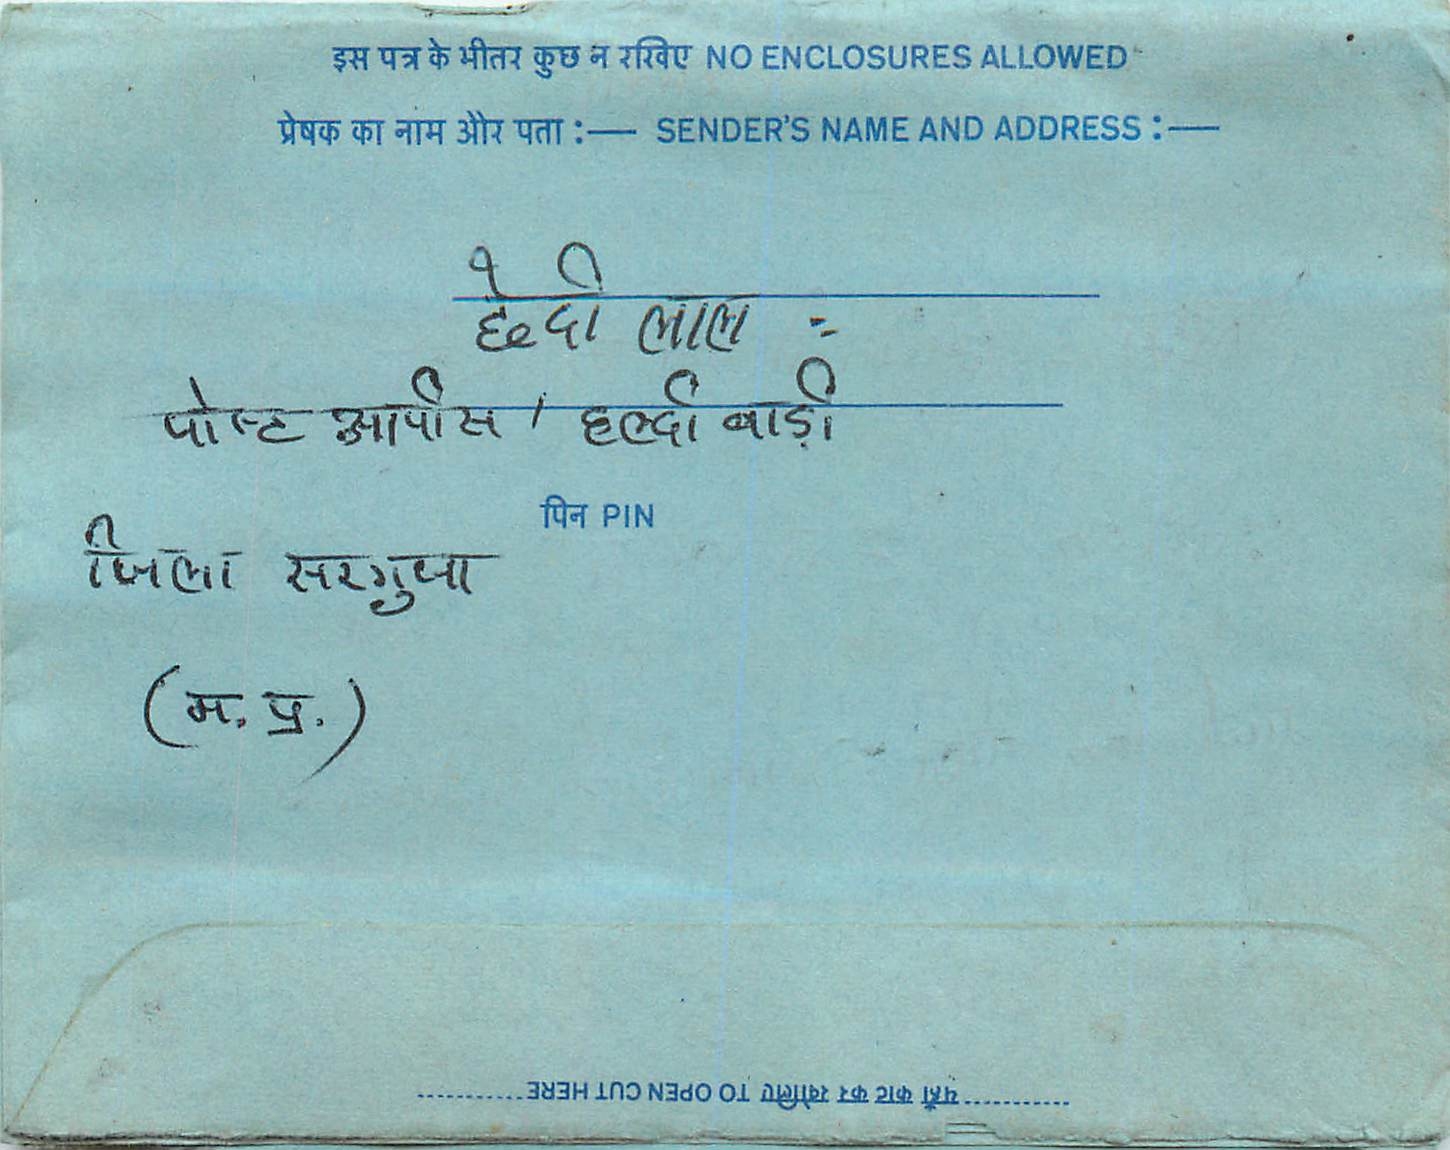 इस पत्र के भीतर कुछ न रखिए NO ENCLOSURES ALLOWED
प्रेषक का नाम और पता :— SENDER'S NAME AND ADDRESS :—
छेदी लाल =
पोस्ट आपीस / हल्दी बाड़ी
पिन PIN
जिला सरगुजा
(म. प्र.)
यहाँ काट कर खोलिए TO OPEN CUT HERE